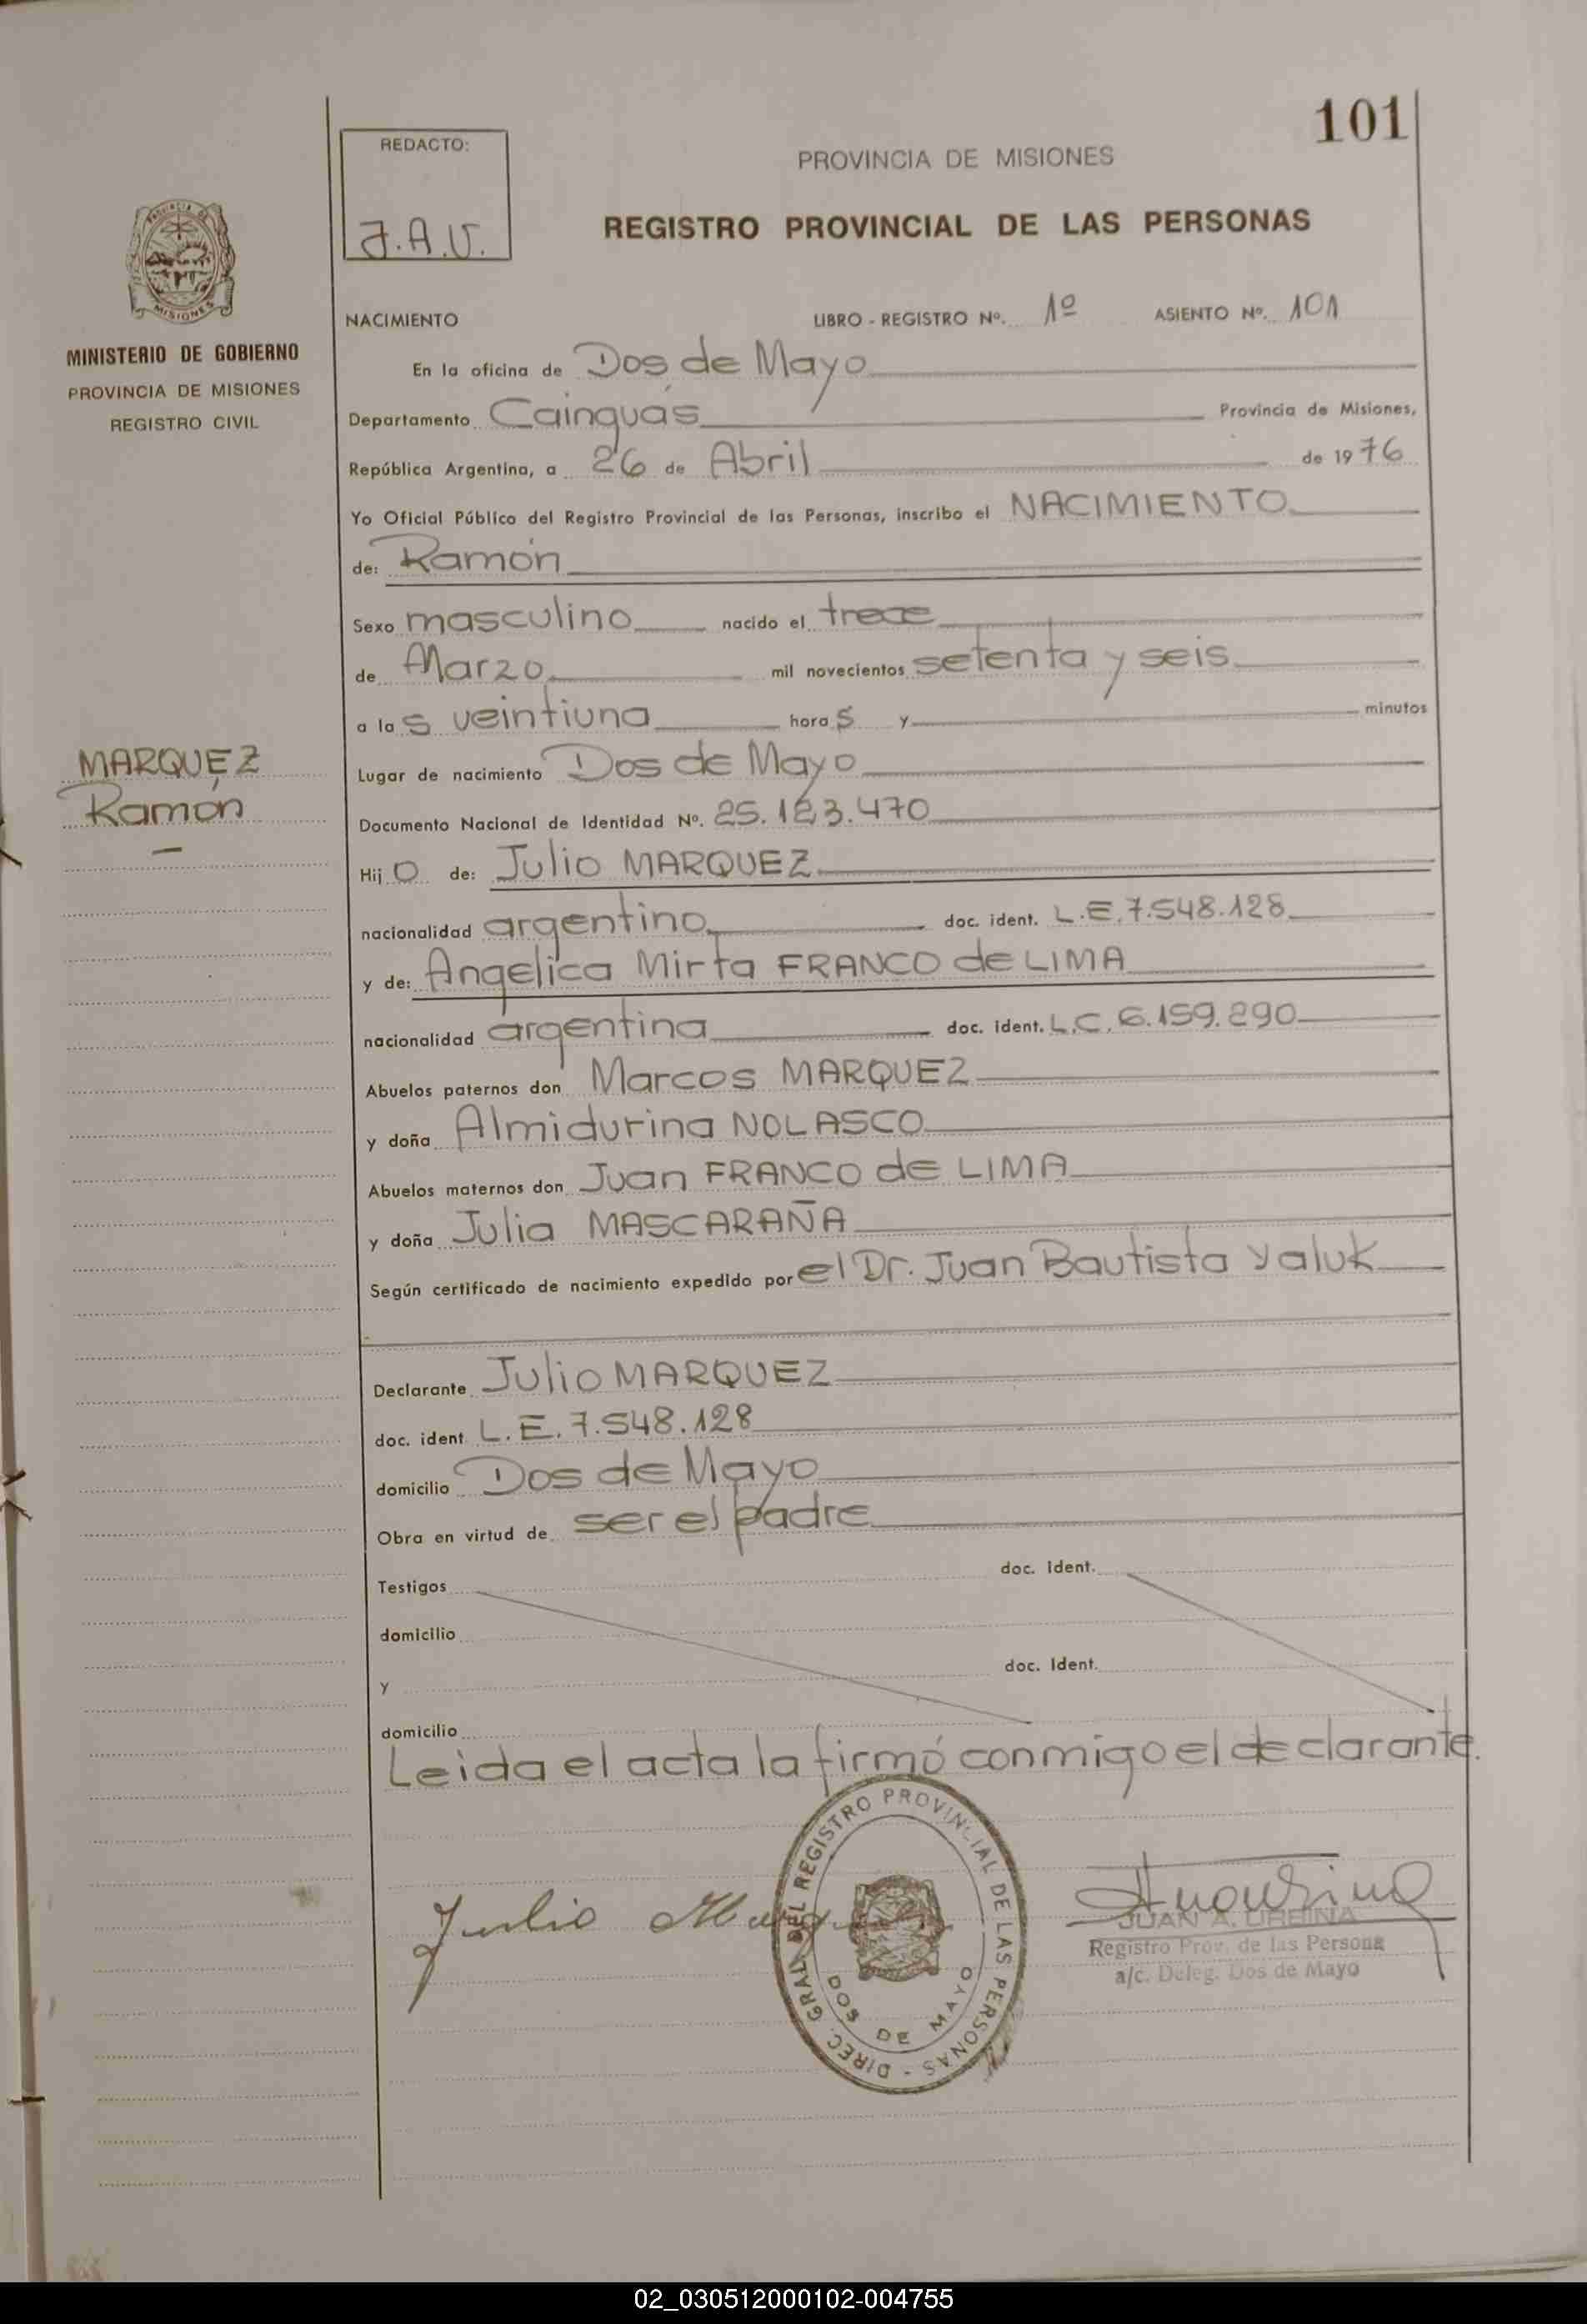 101
REDACTO:
J.A.U.
PROVINCIA DE MISIONES
REGISTRO PROVINCIAL DE LAS PERSONAS
PROVINCIA DE MISIONES
MINISTERIO DE GOBIERNO
PROVINCIA DE MISIONES
REGISTRO CIVIL
NACIMIENTO LIBRO - REGISTRO Nº. 1º ASIENTO Nº. 101
En la oficina de Dos de Mayo
Departamento Cainguás Provincia de Misiones,
República Argentina, a 26 de Abril de 1976
Yo Oficial Público del Registro Provincial de las Personas, inscribo el NACIMIENTO
de: Ramón
Sexo masculino nacido el trece
de Marzo mil novecientos setenta y seis
a las veintiuna horas y minutos
MARQUEZ
Ramón
Lugar de nacimiento Dos de Mayo
Documento Nacional de Identidad Nº. 25.123.470
Hijo de: Julio MARQUEZ
nacionalidad argentino doc. ident. L.E. 7.548.128
y de: Angelica Mirta FRANCO de LIMA
nacionalidad argentina doc. ident. L.C. 6.159.290
Abuelos paternos don Marcos MARQUEZ
y doña Almidurina NOLASCO
Abuelos maternos don Juan FRANCO de LIMA
y doña Julia MASCARAÑA
Según certificado de nacimiento expedido por el Dr. Juan Bautista Yaluk
Declarante Julio MARQUEZ
doc. ident. L.E. 7.548.128
domicilio Dos de Mayo
Obra en virtud de ser el padre
Testigos doc. ident.
domicilio
y doc. ident.
domicilio
Leida el acta la firmó conmigo el declarante.
Julio
DIREC. GRAL. DEL REGISTRO PROVINCIAL DE LAS PERSONAS -
DOS DE MAYO
JUAN A. URBINA
Registro Prov. de las Persona
a/c. Deleg. Dos de Mayo
02_030512000102-004755